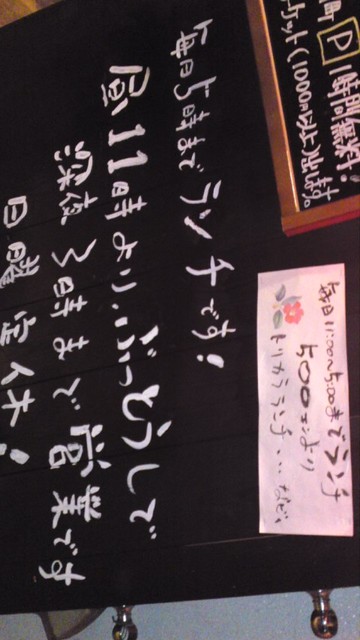 町 P 1時間無料!
ケット(1000円以上)出ます。
毎日11:00〜5:00までランチ
500エンより
トリカラランチ・・・など、
毎日5時まで ランチです!
昼11時より、ぶっとうしで
深夜3時まで営業です
日曜定休!